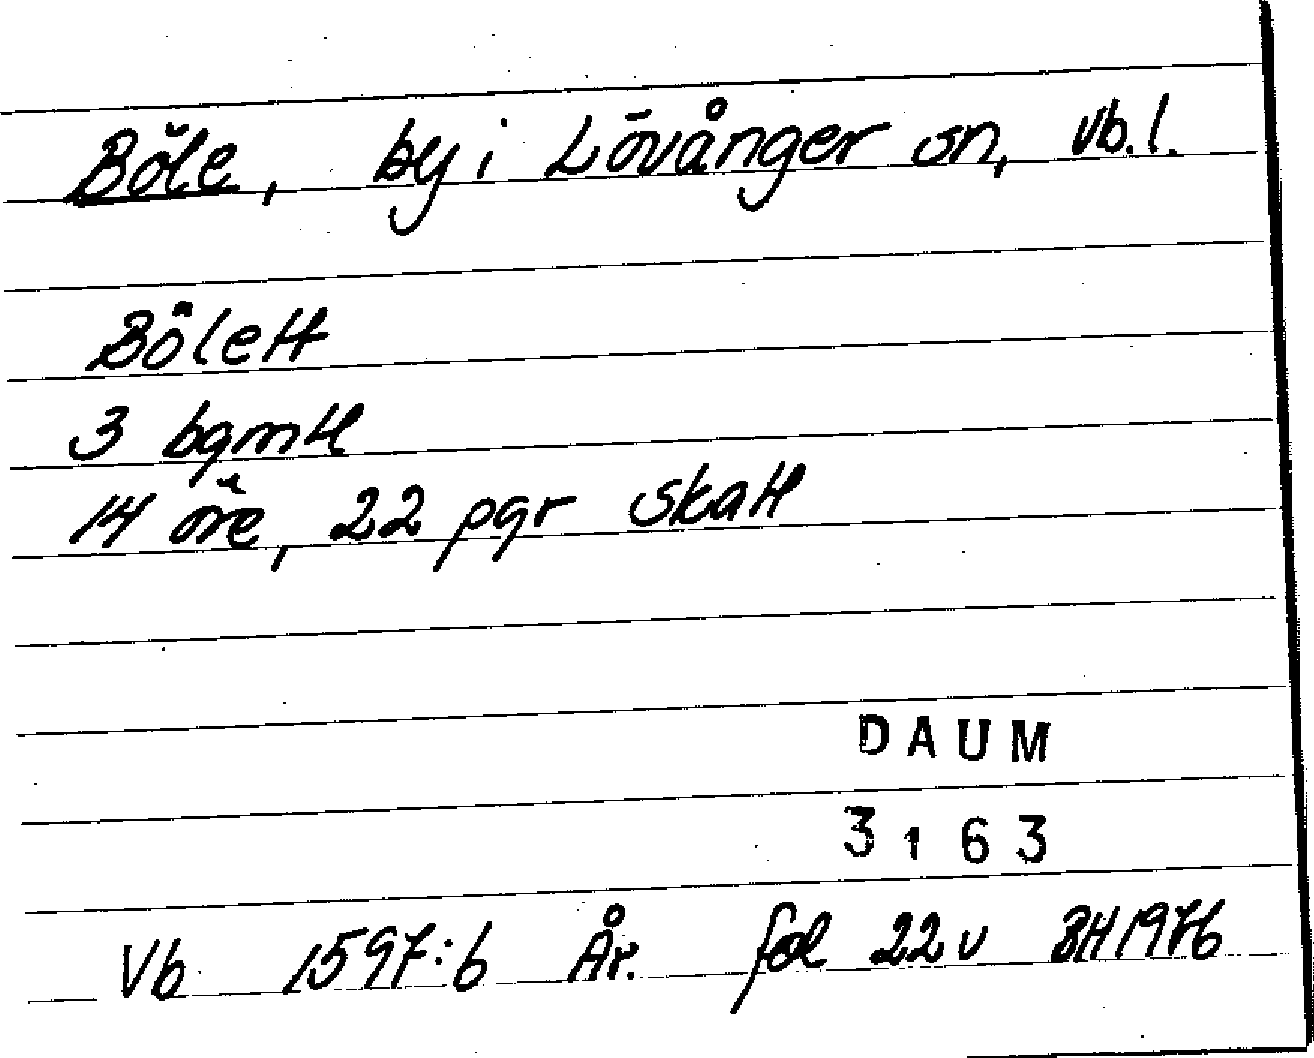 Böle, by i Lövånger sn, Vb. l.
Bölett
3 bgmtl
14 öre, 22 pgr skatt
DAUM
3163
Vb 1597:6 År. fol 22v BH 1976